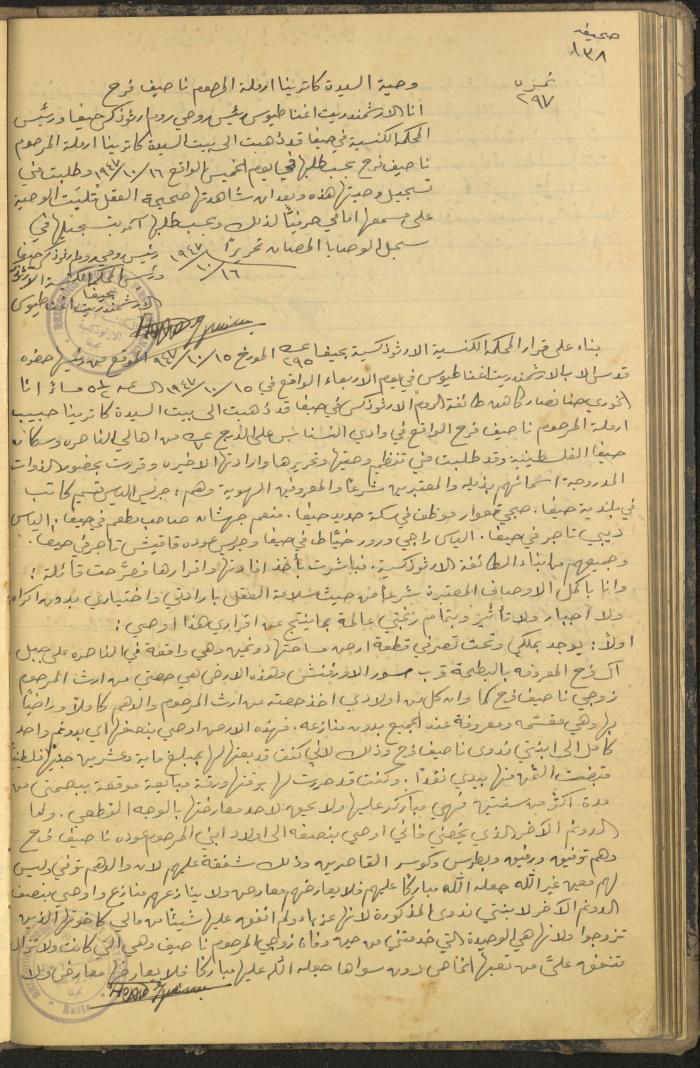 صحيفة
١٣٨
نمرة
٢٩٧
وصية السيدة كاترينا ارملة المرحوم ناصيف فرح
انا الارشمندريت اغناطيوس رئيس روحي روم ارثوذكس حيفا ورئيس
المحكمة الكنسية في حيفا قد ذهبت الى بيت السيدة كاترينا ارملة المرحوم
ناصيف فرح بحسب طلبها في يوم الخميس الواقع ١٦/١٠/١٩٤٧ وطلبت مني
تسجيل وصيتها هذه وبعد ان شاهدتها صحيحة العقل تليت الوصية
على مسمعها امامي حرفياً لذلك وبحسب طلبها آمر بتسجيلها في
سجل الوصايا المصان تحريراً ١٦/١٠/١٩٤٧
رئيس روحي روم ارثوذكس حيفا
ورئيس المحكمة الكنسية الارثوذكسية
بحيفا
الارشمندريت اغناطيوس
بناء على قرار المحكمة الكنسية الارثوذكسية بحيفا عدد ٢٩٥ المؤرخ ١٥/١٠/٩٤٧ الموقع من رئيسها حضرة
قدس الاب الارشمندريت اغناطيوس في يوم الاربعاء الواقع في ١٥/١٠/١٩٤٧ الساعة ٥١/٢ مساءً انا
الخوري حنا نصار كاهن طائفة الروم الارثوذكس في حيفا قد ذهبت الى بيت السيدة كاترينا حبيب
ارملة المرحوم ناصيف فرح الواقع في وادي النسناس على الدرج من اهالي الناصره وسكانه
حيفا الفلسطينية وقد طلبت مني تنظيم وصيتها وتحريرها وارادتها الاخيره وقررت بحضور الذوات
المدرجة اسمائهم بذيله والمعتبرين شرعاً والمعروفين الهوية وهم: جرجس الياس قسيم كاتب
في بلدية حيفا. صبحي قعوار موظف في سكة حديد حيفا. منعم جهشان صاحب مطعم في حيفا. الياس
ذيبي تاجر في حيفا. الياس راجي ورور خياط في حيفا وجريس عوده قاقيش تاجر في حيفا.
وجميعهم من ابناء الطائفة الارثوذكسية. فباشرت بأخذ افادتها واقرارها فصرّحت قائلة:
وانا بأكمل الاوصاف المعتبرة شرعاً من حيث سلامة العقل بارادتي واختياري بدون اكراه
ولا اجبار ولا تأثير وبتمام رغبتي عالمة بما ينتج عن اقراري هذا اوصي:
اولاً: يوجد بملكي وتحت تصرفي قطعة ارض مساحتها دونمين وهي واقعة في الناصره على جبل
آل فرح المعروفه بالبطيحة قرب سور الافرنش وهذه الارض هي حصتي من ارث المرحوم
زوجي ناصيف فرح كما وان كل من اولادي اخذ حصته من ارث المرحوم والدهم كاملاً وراضياً
بها وهي مقسّمه ومعروفة عند الجميع بدون منازعه. فهذه الارض اوصي بنصفها اي بدونم واحد
كامل الى ابنتي ندوى ناصيف فرح وذلك لاني كنت قد بعتها لها بمبلغ ماية وعشرين جنيهاً فلسطينياً
وقبضت الثمن منها بيدي نقداً. وكنت قد حررت لها بوقتها ورقة مبايعة موقعة ببصمتي من
مدة اكثر من سنتين فهي مباركة عليها ولا يحق لاحد معارضتها بالوجه القطعي. واما
الدونم الآخر الذي يخصني فاني اوصي بنصفه الى اولاد ابني المرحوم عوده ناصيف فرح
وهم توفيق ورفيق وبطرس وكوسر القاصرين وذلك شفقة عليهم لان والدهم توفى وليس
لهم معين غير الله جعله الله مباركاً عليهم فلا يعارضهم معارض ولا ينازعهم منازع واوصي بنصف
الدونم الآخر لابنتي ندوى المذكورة لانها عزباء ولم انفق عليها شيئاً من مالي كاخوتها الذين
تزوجوا ولانها هي الوحيدة التي خدمتني من حين وفاة زوجي المرحوم ناصيف وهي التي كانت ولا تزال
تنفق عليّ من تعبها الخاص دون سواها جعله الله عليها مباركاً فلا يعارضها معارض ولا
Haifa